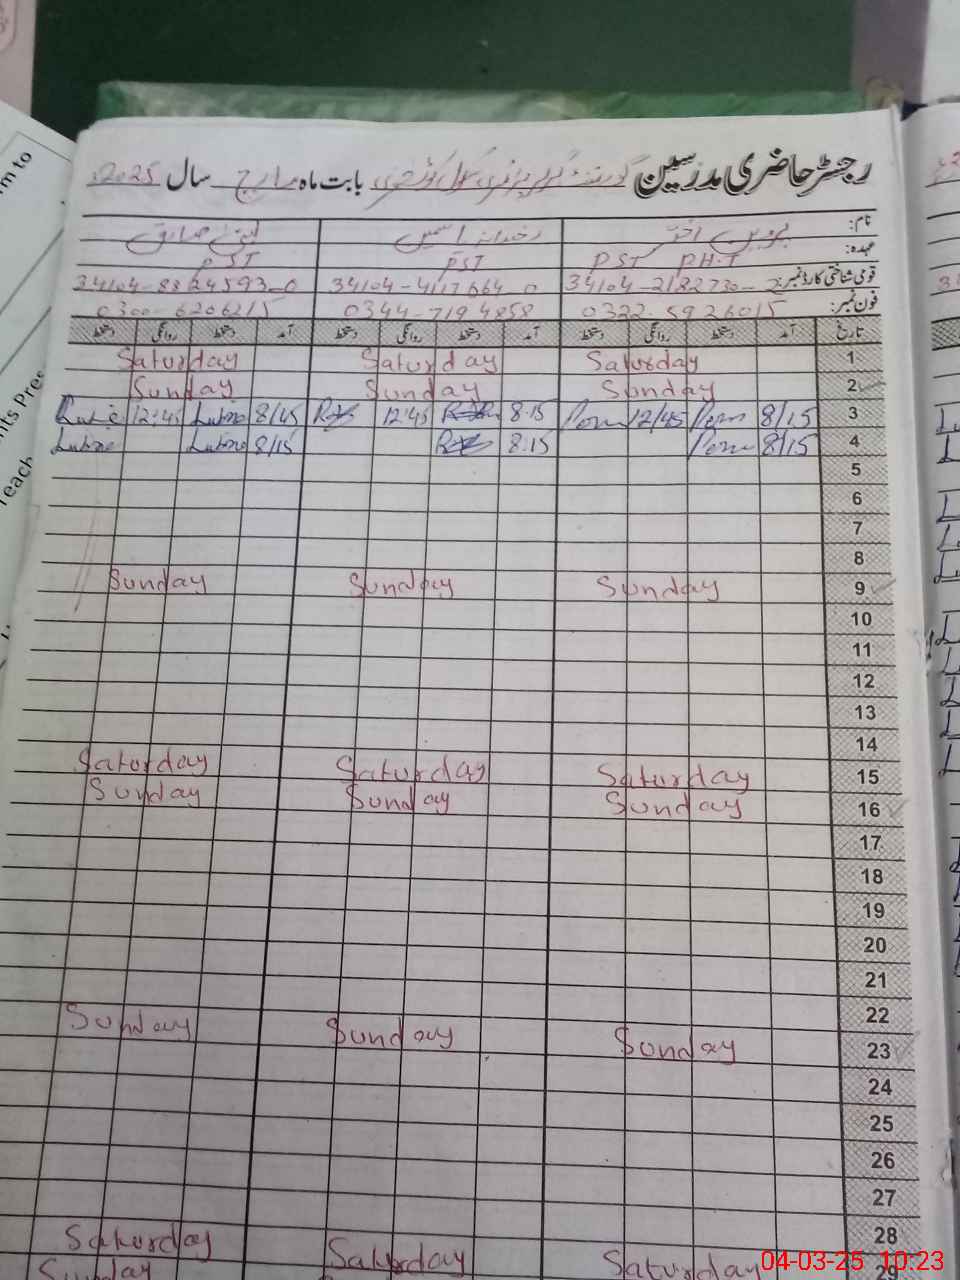 رجسٹر حاضری مدرسین گورنمنٹ بابت ماہ مارچ سال 2025
نام: پروین اختر رخسانہ یاسمین لبنیٰ صادق
عہدہ: PST P.H.T PST PST
قومی شناختی کارڈ نمبر: 34104-2182730-2 34104-4117664-0 34104-8824593-0
فون نمبر: 0322-5926015 0344-7194858 0300-6206215
تاریخ آمد دستخط روانگی دستخط آمد دستخط روانگی دستخط آمد دستخط روانگی دستخط
1 Saturday Saturday Saturday
2 Sunday Sunday Sunday
3 8/15 12/45 8:15 12:45 8/15 Lubna 12:45
4 8/15 8:15 8/15 Lubna Lubna
5
6
7
8
9 Sunday Sunday Sunday
10
11
12
13
14
15 Saturday Saturday Saturday
16 Sunday Sunday Sunday
17
18
19
20
21
22
23 Sunday Sunday Sunday
24
25
26
27
28
29 Saturday Saturday Saturday
Sunday
m to
nts Pres
Teach
04-03-25 10:23